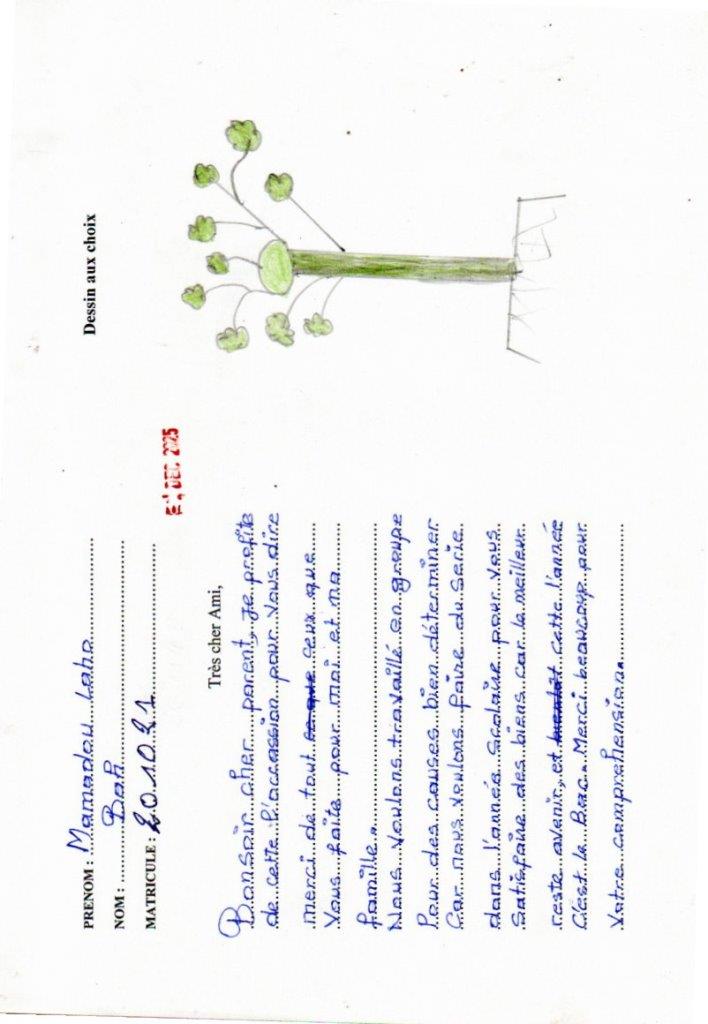 PRENOM : Mamadou Laho
NOM : Bah
MATRICULE : 201021
DEC. 2025
Dessin aux choix
Très cher Ami,
Bonsoir cher parent, Je profite
de cette l'occassion pour vous dire
merci de tout ceux que
Vous faite pour moi et ma
famille.
Nous voulons travaillé en groupe
Pour des causes bien déterminer
Car nous voulons faire du serie
dans l'année scolaire pour vous
Satisfaire des biens car le meilleur
reste avenir, et cette l'année
C'est le Bac. Merci beaucoup pour
Votre comprehension.